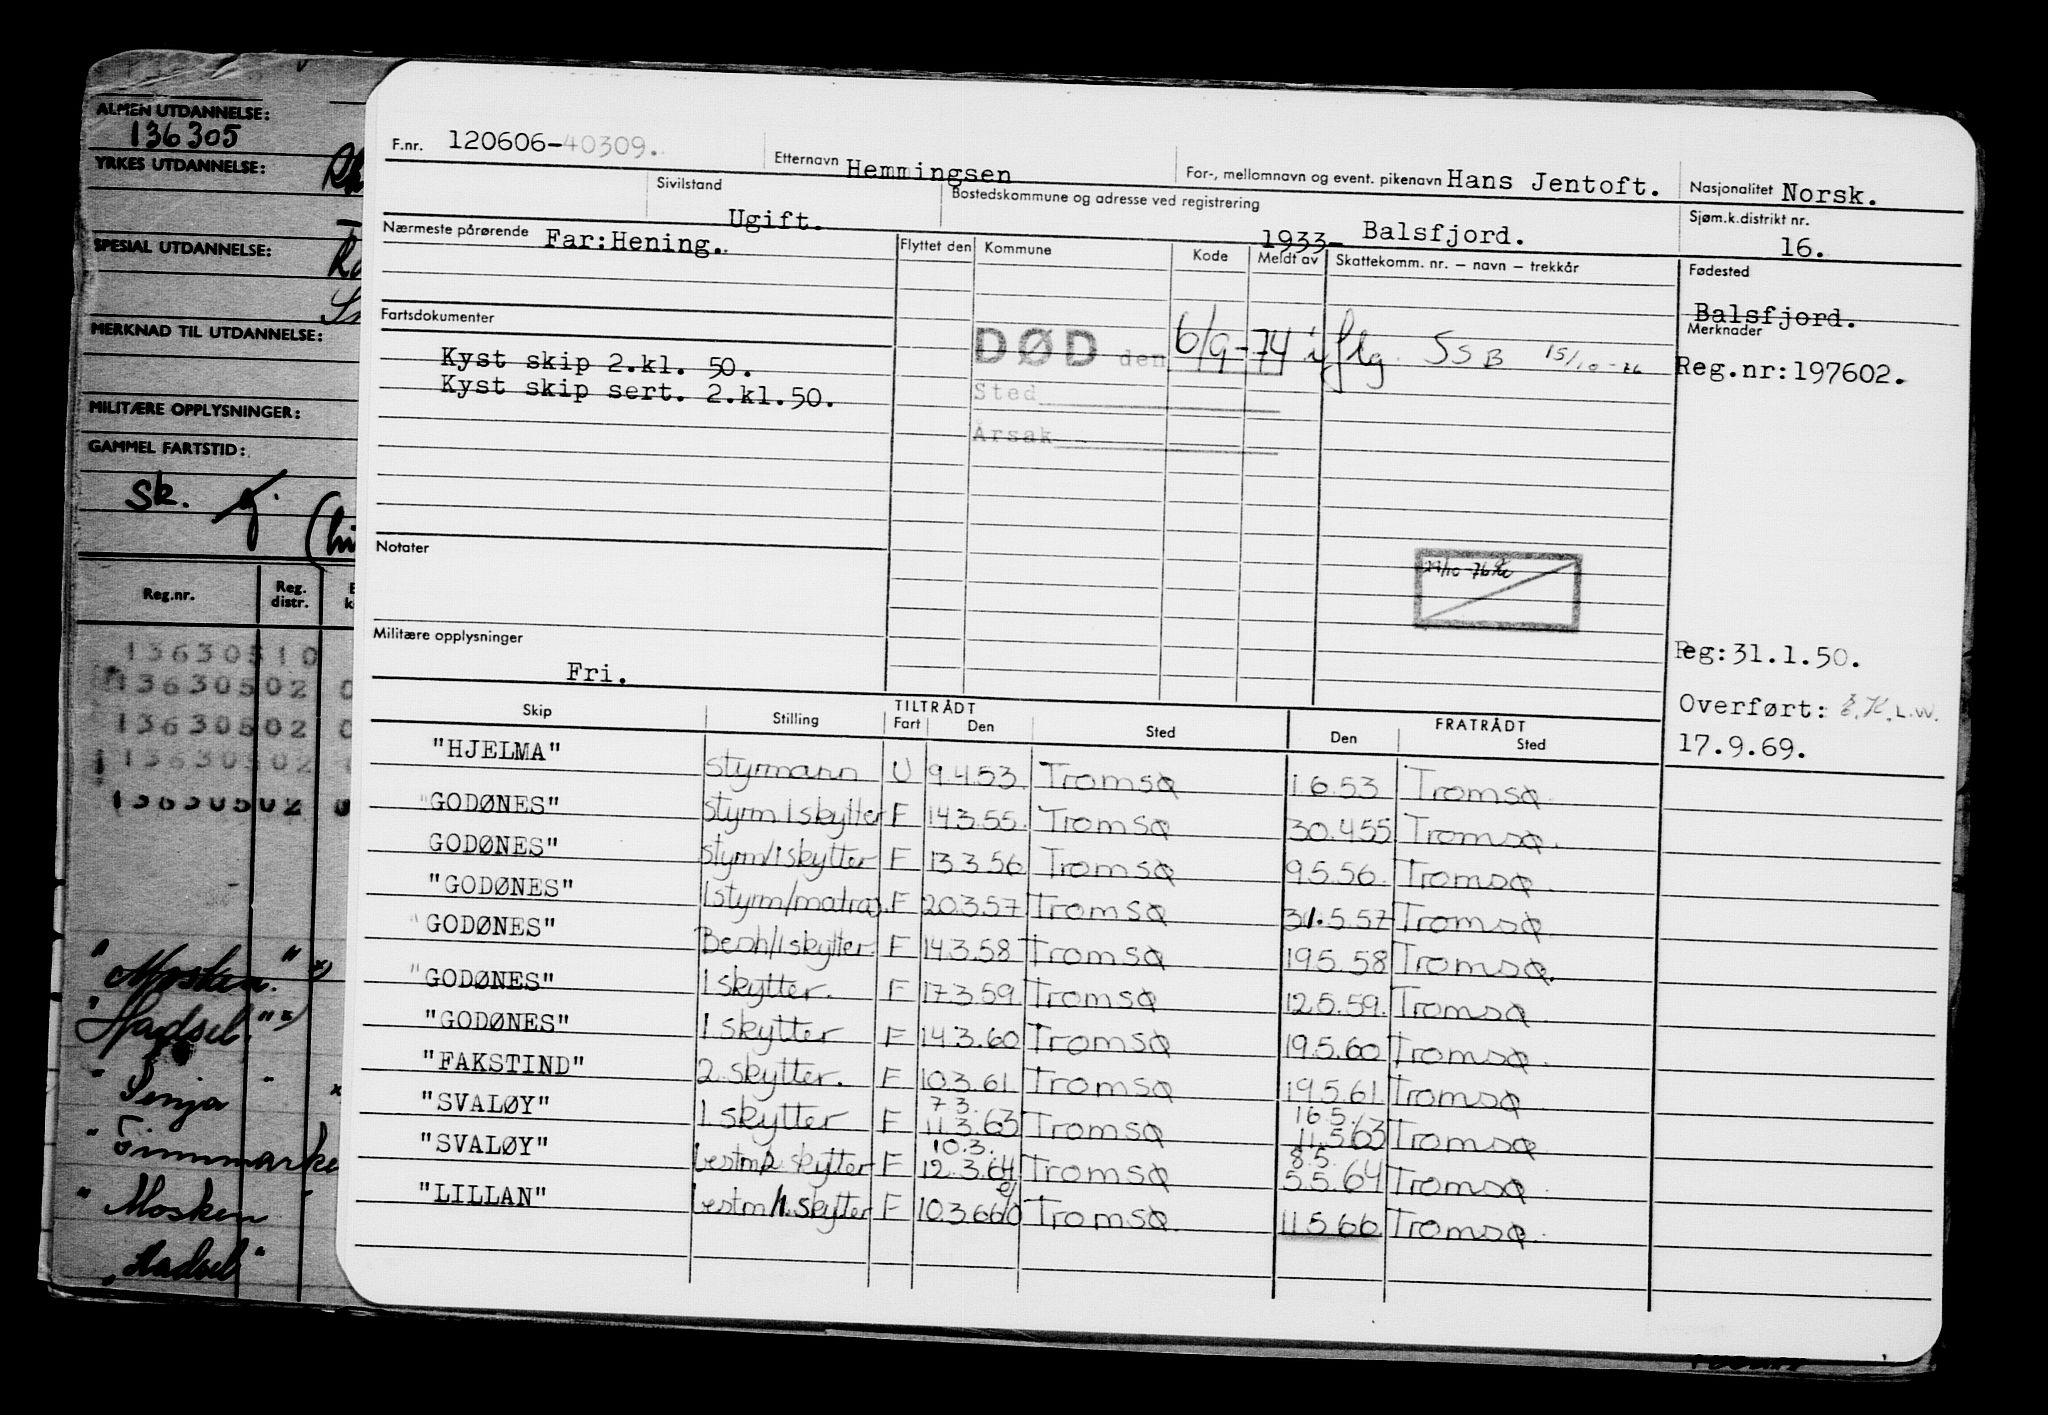 ALMEN UTDANNELSE:
136305
YRKES UTDANNELSE:
SPESIAL UTDANNELSE:
MERKNAD TIL UTDANNELSE:
MILITÆRE OPPLYSNINGER:
GAMMEL FARTSTID:
Sk.
Reg.nr. Reg. distr.
13630510
13630502
13630502
13630502
13630502
"Mosken" x)
"Hadsel" x)
"Senja" x
"Finnmarke
"Mosken
"Hadsel"
F.nr. 120606-40309. Etternavn Hemmingsen For-, mellomnavn og event. pikenavn Hans Jentoft. Nasjonalitet Norsk.
Sivilstand Ugift. Bostedskommune og adresse ved registrering 1933- Balsfjord. Sjøm.k.distrikt nr. 16.
Nærmeste pårørende Far:Hening. Flyttet den Kommune Kode Meldt av Skattekomm. nr. – navn – trekkår Fødested
Balsfjord.
Fartsdokumenter
Merknader
DØD den 6/9-74 iflg. SSB 15/10-76
Reg.nr:197602.
Kyst skip 2.kl. 50.
Kyst skip sert. 2.kl.50.
Sted
Årsak
Notater
29/10-76
Militære opplysninger
Fri.
Reg:31.1.50.
Overført: L.W.
17.9.69.
Skip Stilling TILTRÅDT Fart Den Sted FRATRÅDT Den Sted
"HJELMA" styrmann U 9.4.53 Tromsø 1.6.53 Tromsø
"GODØNES" styrm/skytter F 14.3.55. Tromsø 30.4.55 Tromsø.
GODØNES" styrm/1skytter F 13.3.56 Tromsø 9.5.56. Tromsø
"GODØNES" 1styrm/matros F 20.3.57 Tromsø 31.5.57 Tromsø
"GODØNES" Besth/1skytter. F 14.3.58 Tromsø 19.5.58 Tromsø.
"GODØNES" 1skytter. F 17.3.59 Tromsø 12.5.59. Tromsø
"GODØNES" 1.skytter F 14.3.60 Tromsø 19.5.60 Tromsø
"FAKSTIND" 2.skytter. F 10.3.61 Tromsø 19.5.61 Tromsø
7.3. 16.5.
"SVALØY" 1.skytter F 11.3.63 Tromsø 11.5.63 Tromsø
10.3. 8.5.
"SVALØY" Lestm/2.skytter F 12.3.64 Tromsø 5.5.64 Tromsø
"LILLAN" Lestm/1.skytter F 10.3.66 Tromsø 11.5.66 Tromsø